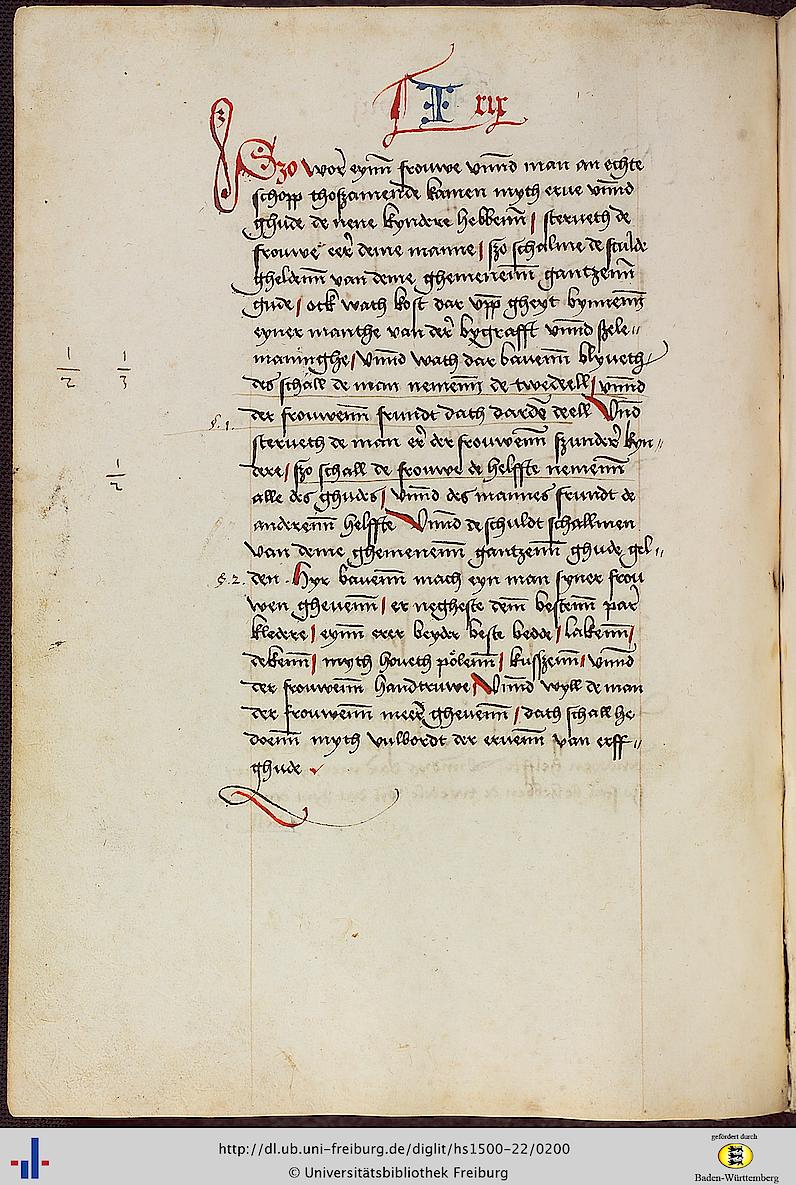 I xix
Szo wor eynn frouwe vnnd man an echte
schopp thoszamende kamen myth erue vnnd
ghude de nene kyndere hebbenn / sterueth de
frouwe eer deme manne / szo schalme de schulde
gheldenn van deme ghemenenn gantzenn
gude / ock wath kost dar vpp gheyt bynnenn
eyner manthe van der bygrafft vnnd szele„
manninghe / vnnd wath dar bauenn blyueth
des schall de man nemenn de twedeell / vnnd
der frouwenn frundt dath darde deell Vnd
sterueth de man er der frouwenn szunder kyn„
dere / szo schall de frouwe de helffte nemenn
alle des ghudes / vnnd des mannes frundt de
anderenn helffte Vnnd de schuldt schallmen
van deme ghemenenn gantzenn ghude gel„
den . Hyr bauenn mach eyn man syner frou
wen gheuenn / er negheste dem bestenn par
kledere / eynn erer beyder beste bedde / lakenn /
dekenn / myth houeth pölenn / kusszenn / vnnd
der frouwenn handtruwe / Vnnd wyll de man
der frouwenn meer gheuenn / dath schall he
doenn myth vulbordt der eruenn van erff„
ghude
1/2 1/3
§. 1.
1/2
§. 2.
http://dl.ub.uni-freiburg.de/diglit/hs1500-22/0200
© Universitätsbibliothek Freiburg
gefördert durch
Baden-Württemberg